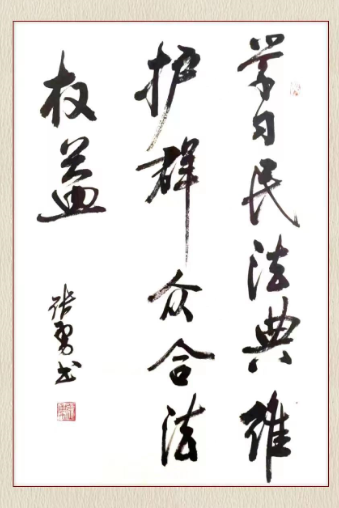 学习民法典维
护群众合法
权益
张勇书